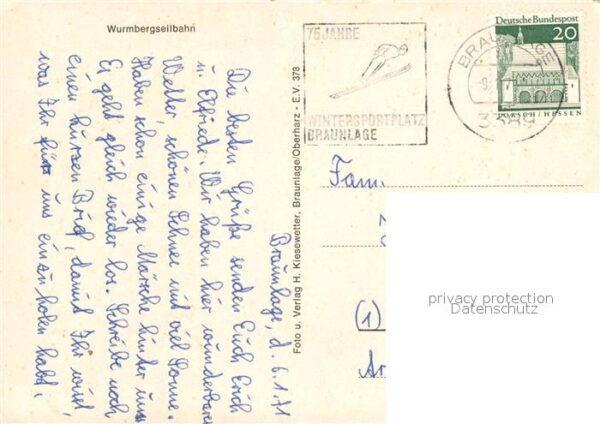 Wurmbergseilbahn
Braunlage, d. 6.1.71
Die besten Grüße senden Euch Erich
u. Elfriede. Wir haben hier wunderbares
Wetter, schönen Schnee und viel Sonne.
Haben schon einige Märsche hinter uns.
Es geht gleich wieder los. Schreibe noch
einen kurzen Brief, damit Ihr wißt,
was Ihr für uns einzuholen habt.
Foto u. Verlag H. Kiesewetter, Braunlage/Oberharz - E.V. 378
75 JAHRE
WINTERSPORTPLATZ
BRAUNLAGE
3389
Deutsche Bundespost
20
LORSCH/HESSEN
Fam.
(1)
privacy protection
Datenschutz